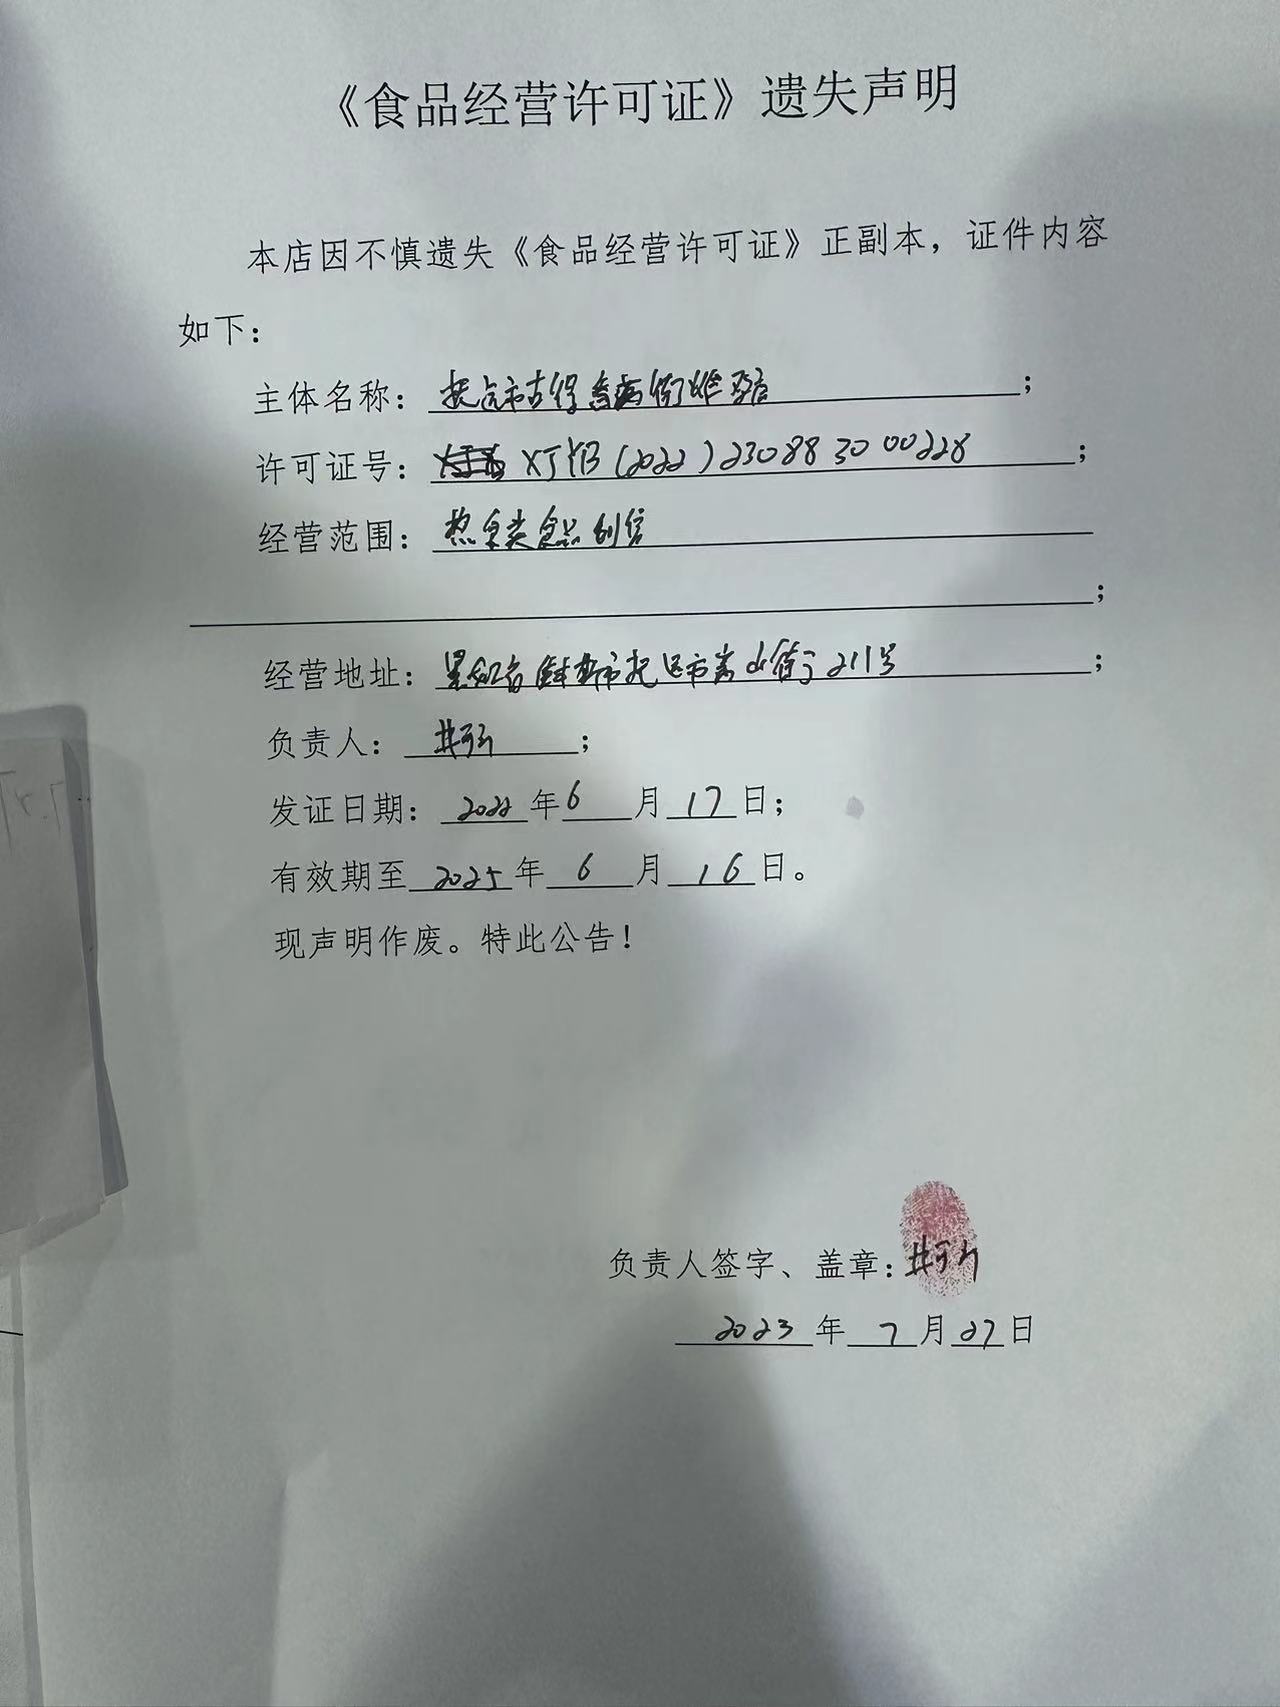 《食品经营许可证》遗失声明
本店因不慎遗失《食品经营许可证》正副本，证件内容
如下：
主体名称：抚远市古得香 ；
许可证号：XJYB（2022）2308830000228；
经营范围：热食类食品制售
；
经营地址：黑龙江省佳木斯市抚远市 山街 211号；
负责人：；
发证日期：2022年6月17日；
有效期至2025年6月16日。
现声明作废。特此公告！
负责人签字、盖章：
2023年7月27日